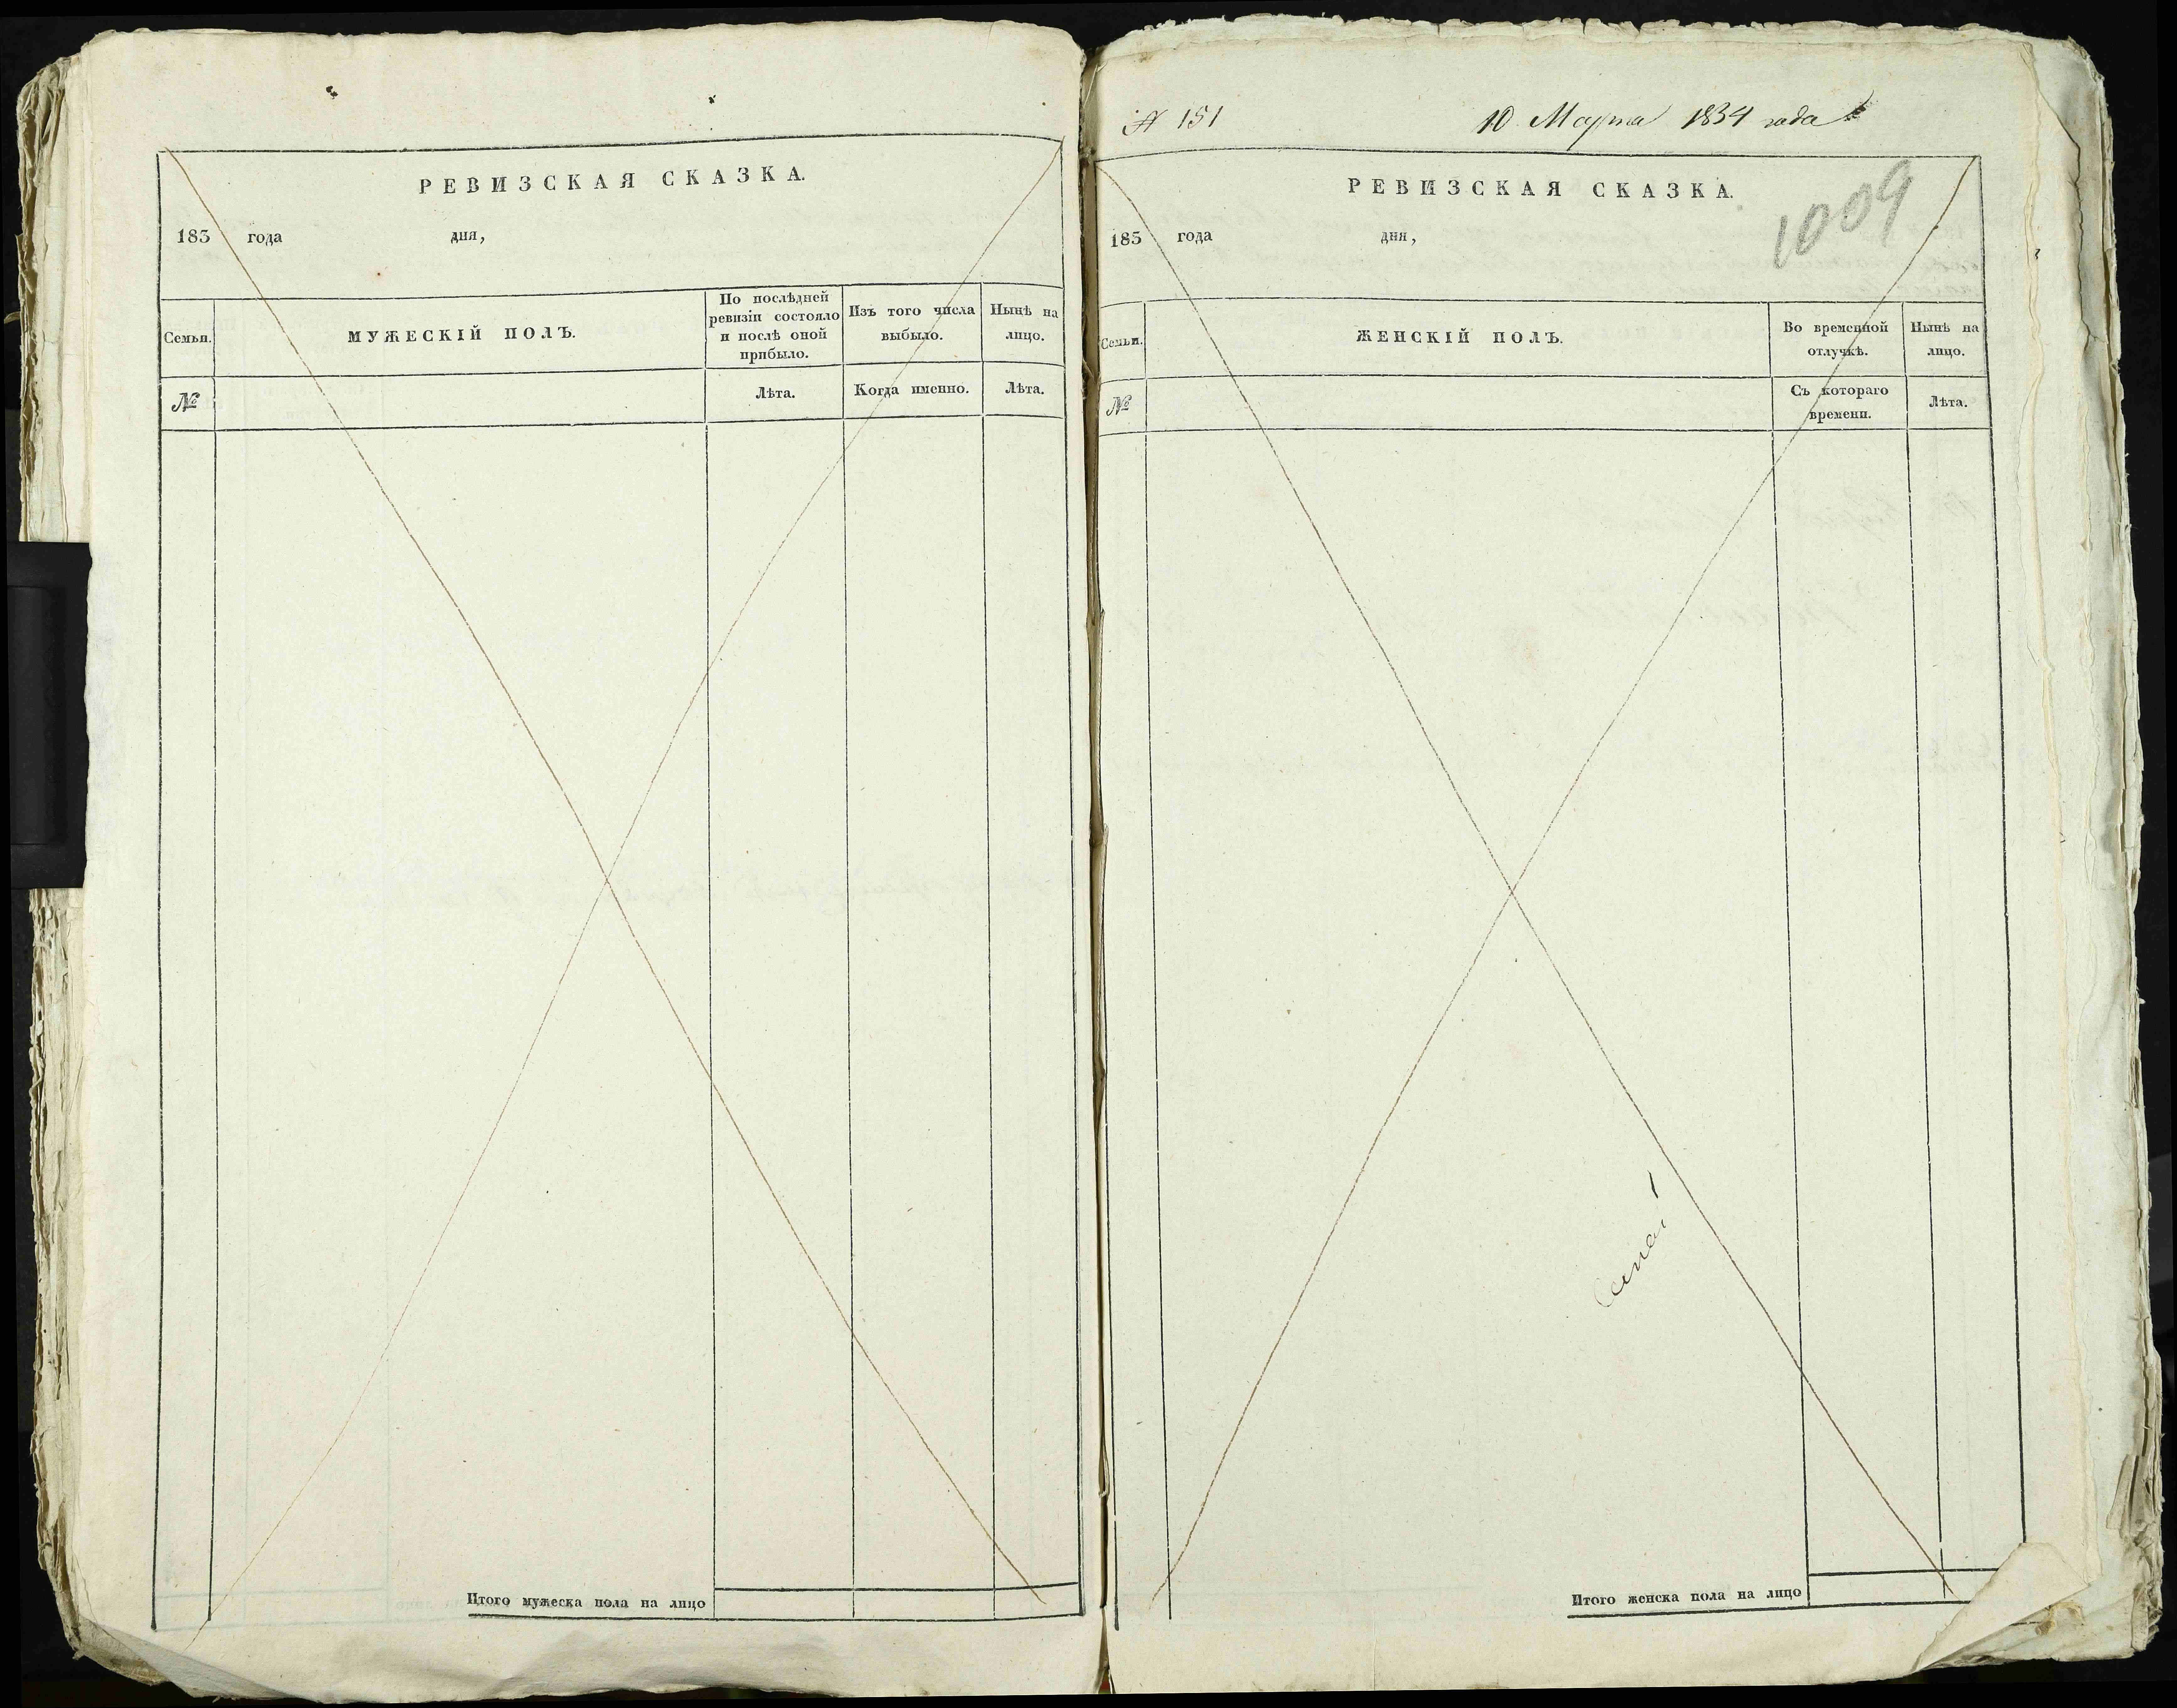 РЕВИЗСКАЯ СКАЗКА.
183 года дня,
Семьи.
МУЖЕСКІЙ ПОЛЪ.
По послѣдней
ревизіи состояло
и послѣ оной
прибыло.
Изъ того числа
выбыло.
Нынѣ на
лицо.
№
Лѣта.
Когда именно.
Лѣта.
Итого мужеска пола на лицо
№ 151
10 Марта 1834 года
РЕВИЗСКАЯ СКАЗКА.
1009
183 года дня,
Семьи.
ЖЕНСКІЙ ПОЛЪ.
Во временной
отлучкѣ.
Нынѣ на
лицо.
№
Съ котораго
времени.
Лѣта.
Итого женска пола на лицо